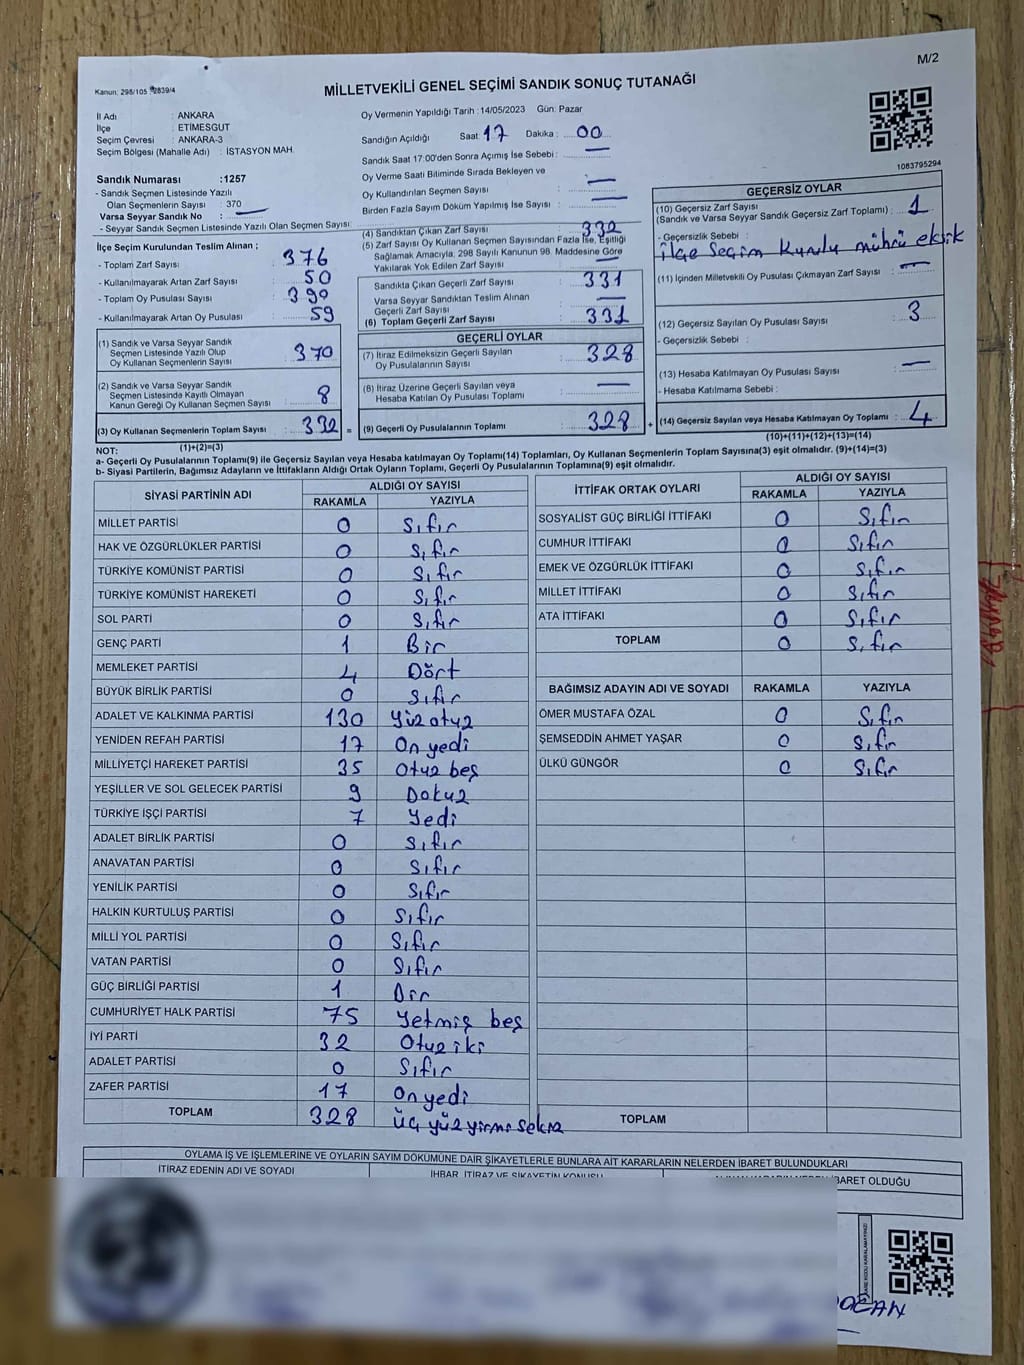 M/2
Kanun: 298/105 2839/4
MİLLETVEKİLİ GENEL SEÇİMİ SANDIK SONUÇ TUTANAĞI
İl Adı : ANKARA
İlçe : ETİMESGUT
Seçim Çevresi : ANKARA-3
Seçim Bölgesi (Mahalle Adı) : İSTASYON MAH.
Sandık Numarası :1257
- Sandık Seçmen Listesinde Yazılı
Olan Seçmenlerin Sayısı : 370
Varsa Seyyar Sandık No : —
- Seyyar Sandık Seçmen Listesinde Yazılı Olan Seçmen Sayısı:
Oy Vermenin Yapıldığı Tarih :14/05/2023 Gün: Pazar
Sandığın Açıldığı Saat 17 Dakika : 00
Sandık Saat 17:00'den Sonra Açımış İse Sebebi : —
Oy Verme Saati Bitiminde Sırada Bekleyen ve
Oy Kullandırılan Seçmen Sayısı : —
Birden Fazla Sayım Döküm Yapılmış İse Sayısı : —
1083795294
İlçe Seçim Kurulundan Teslim Alınan ;
- Toplam Zarf Sayısı : 376
- Kullanılmayarak Artan Zarf Sayısı : 50
- Toplam Oy Pusulası Sayısı : 390
- Kullanılmayarak Artan Oy Pusulası : 59
(1) Sandık ve Varsa Seyyar Sandık
Seçmen Listesinde Yazılı Olup
Oy Kullanan Seçmenlerin Sayısı : 370
(2) Sandık ve Varsa Seyyar Sandık
Seçmen Listesinde Kayıtlı Olmayan
Kanun Gereği Oy Kullanan Seçmen Sayısı : 8
(3) Oy Kullanan Seçmenlerin Toplam Sayısı : 332 =
(1)+(2)=(3)
(4) Sandıktan Çıkan Zarf Sayısı : 332
(5) Zarf Sayısı Oy Kullanan Seçmen Sayısından Fazla İse, Eşitliği
Sağlamak Amacıyla, 298 Sayılı Kanunun 98. Maddesine Göre
Yakılarak Yok Edilen Zarf Sayısı : —
Sandıkta Çıkan Geçerli Zarf Sayısı : 331
Varsa Seyyar Sandıktan Teslim Alınan
Geçerli Zarf Sayısı : —
(6) Toplam Geçerli Zarf Sayısı : 331
GEÇERLİ OYLAR
(7) İtiraz Edilmeksizin Geçerli Sayılan
Oy Pusulalarının Sayısı : 328
(8) İtiraz Üzerine Geçerli Sayılan veya
Hesaba Katılan Oy Pusulası Toplamı : —
(9) Geçerli Oy Pusulalarının Toplamı : 328 +
GEÇERSİZ OYLAR
(10) Geçersiz Zarf Sayısı
(Sandık ve Varsa Seyyar Sandık Geçersiz Zarf Toplamı) : 1
- Geçersizlik Sebebi :
ilçe Seçim Kurulu mührü eksik
(11) İçinden Milletvekili Oy Pusulası Çıkmayan Zarf Sayısı : —
(12) Geçersiz Sayılan Oy Pusulası Sayısı : 3
- Geçersizlik Sebebi :
(13) Hesaba Katılmayan Oy Pusulası Sayısı : —
- Hesaba Katılmama Sebebi :
(14) Geçersiz Sayılan veya Hesaba Katılmayan Oy Toplamı : 4
(10)+(11)+(12)+(13)=(14)
NOT:
a- Geçerli Oy Pusulalarının Toplamı(9) ile Geçersiz Sayılan veya Hesaba katılmayan Oy Toplamı(14) Toplamları, Oy Kullanan Seçmenlerin Toplam Sayısına(3) eşit olmalıdır. (9)+(14)=(3)
b- Siyasi Partilerin, Bağımsız Adayların ve İttifakların Aldığı Ortak Oyların Toplamı, Geçerli Oy Pusulalarının Toplamına(9) eşit olmalıdır.
SİYASİ PARTİNİN ADI ALDIĞI OY SAYISI
RAKAMLA YAZIYLA
MİLLET PARTİSİ 0 Sıfır
HAK VE ÖZGÜRLÜKLER PARTİSİ 0 Sıfır
TÜRKİYE KOMÜNİST PARTİSİ 0 Sıfır
TÜRKİYE KOMÜNİST HAREKETİ 0 Sıfır
SOL PARTİ 0 Sıfır
GENÇ PARTİ 1 Bir
MEMLEKET PARTİSİ 4 Dört
BÜYÜK BİRLİK PARTİSİ 0 Sıfır
ADALET VE KALKINMA PARTİSİ 130 Yüz otuz
YENİDEN REFAH PARTİSİ 17 On yedi
MİLLİYETÇİ HAREKET PARTİSİ 35 Otuz beş
YEŞİLLER VE SOL GELECEK PARTİSİ 9 Dokuz
TÜRKİYE İŞÇİ PARTİSİ 7 Yedi
ADALET BİRLİK PARTİSİ 0 Sıfır
ANAVATAN PARTİSİ 0 Sıfır
YENİLİK PARTİSİ 0 Sıfır
HALKIN KURTULUŞ PARTİSİ 0 Sıfır
MİLLİ YOL PARTİSİ 0 Sıfır
VATAN PARTİSİ 0 Sıfır
GÜÇ BİRLİĞİ PARTİSİ 1 Bir
CUMHURİYET HALK PARTİSİ 75 Yetmiş beş
İYİ PARTİ 32 Otuz iki
ADALET PARTİSİ 0 Sıfır
ZAFER PARTİSİ 17 On yedi
TOPLAM 328 üç yüz yirmi sekiz
İTTİFAK ORTAK OYLARI ALDIĞI OY SAYISI
RAKAMLA YAZIYLA
SOSYALİST GÜÇ BİRLİĞİ İTTİFAKI 0 Sıfır
CUMHUR İTTİFAKI 0 Sıfır
EMEK VE ÖZGÜRLÜK İTTİFAKI 0 Sıfır
MİLLET İTTİFAKI 0 Sıfır
ATA İTTİFAKI 0 Sıfır
TOPLAM 0 Sıfır
BAĞIMSIZ ADAYIN ADI VE SOYADI RAKAMLA YAZIYLA
ÖMER MUSTAFA ÖZAL 0 Sıfır
ŞEMSEDDİN AHMET YAŞAR 0 Sıfır
ÜLKÜ GÜNGÖR 0 Sıfır
TOPLAM
OYLAMA İŞ VE İŞLEMLERİNE VE OYLARIN SAYIM DÖKÜMÜNE DAİR ŞİKAYETLERLE BUNLARA AİT KARARLARIN NELERDEN İBARET BULUNDUKLARI
İTİRAZ EDENİN ADI VE SOYADI İHBAR, İTİRAZ VE ŞİKAYETİN KONUSU İBARET OLDUĞU